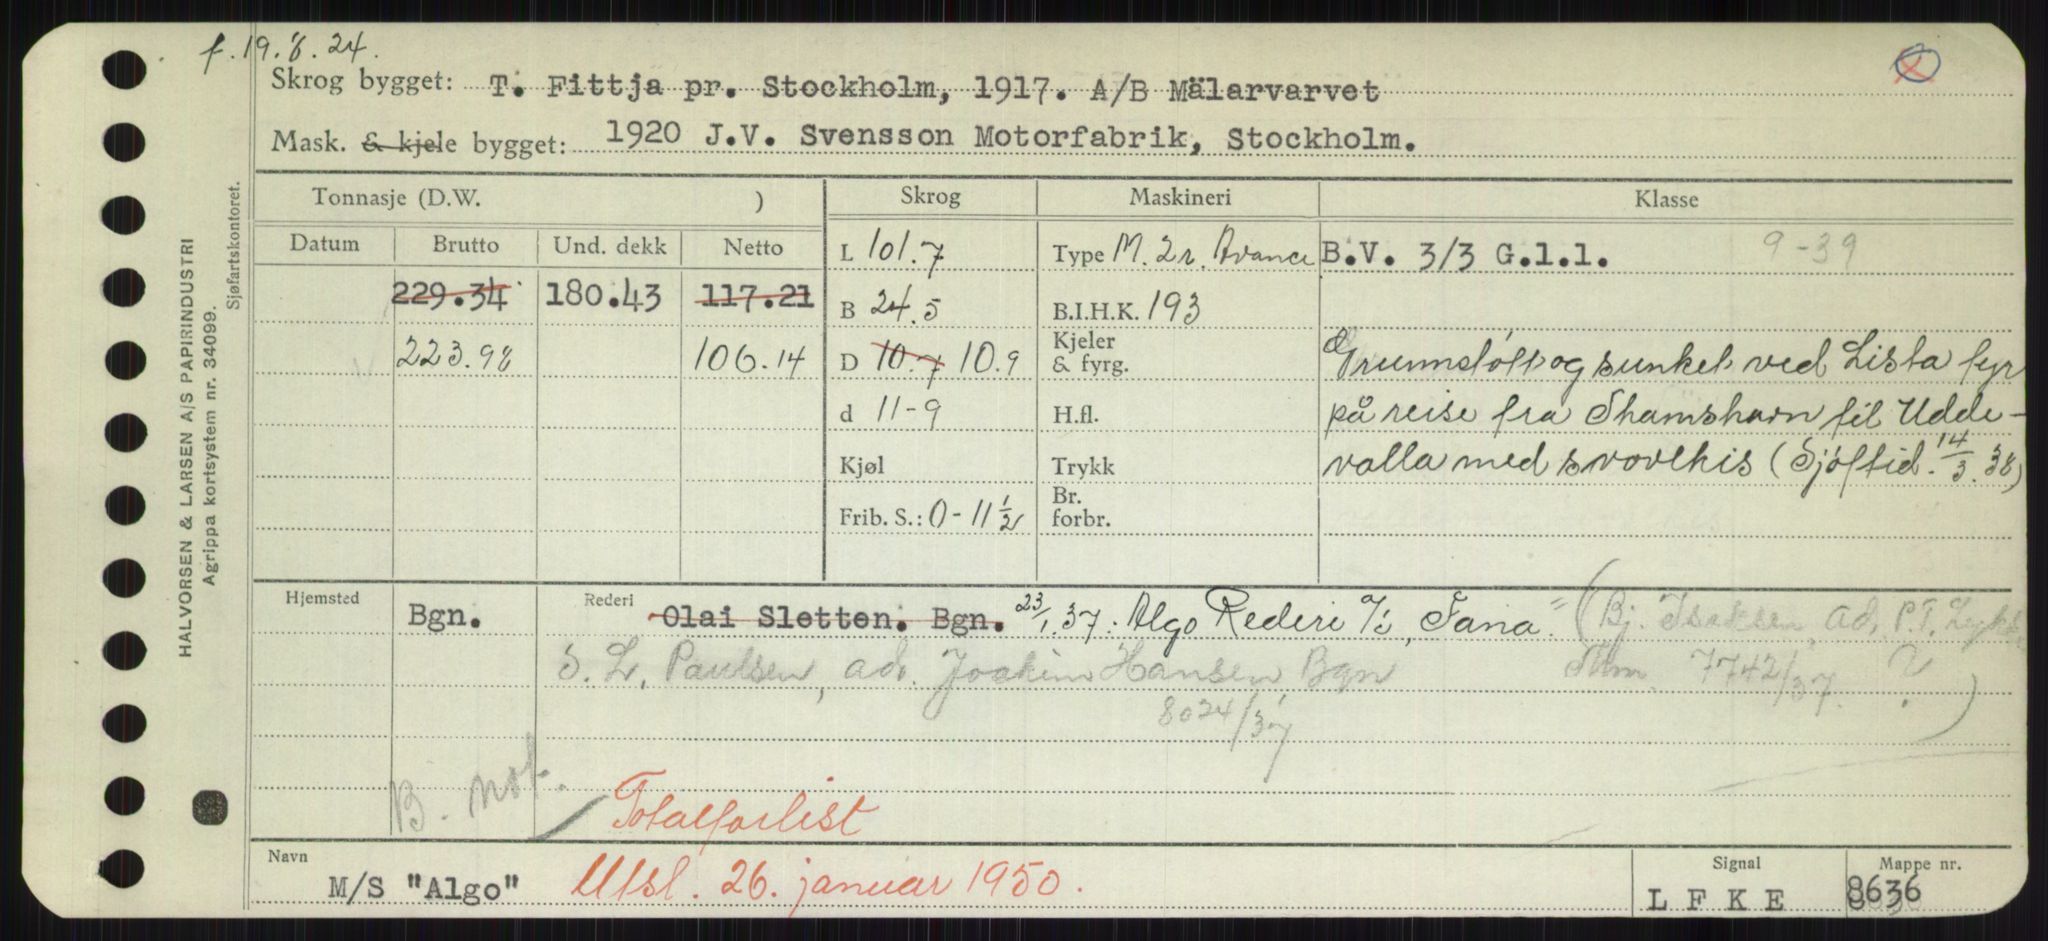 f. 19.8.24.
Skrog bygget: T. Fittja pr. Stockholm, 1917. A/B Mälarvarvet
Mask. & kjele bygget: 1920 J.V. Svensson Motorfabrik, Stockholm.
HALVORSEN & LARSEN A/S PAPIRINDUSTRI
Agrippa kortsystem nr. 34099.
Sjøfartskontoret.
Tonnasje (D.W. ) Skrog Maskineri Klasse
Datum Brutto Und. dekk Netto L 101.7 Type M. 2r. Avance B.V. 3/3 G.l.l. 9-39
229.34 180.43 117.21 B 24.5 B.I.H.K. 193
223.98 106.14 D 10.7 10.9 Kjeler & fyrg. Grunnstøtt og sunket ved Lista fyr
d 11-9 H.fl. på reise fra Thamshavn til Udde-
Kjøl Trykk valla med svovlkis (Sjøftid. 14/3.38)
Frib. S.: 0-11 1/2 Br. forbr.
Hjemsted Bgn. Rederi Olai Sletten. Bgn. 23/1.37. Algo Rederi A/S, Fana. (Bj. Isaksen, ad. P.T.
S. L. Paulsen, ad. Joakim Hansen, Bgn 7742/37. ?)
8024/37
B. not.
Totalforlist
Navn Signal Mappe nr.
M/S "Algo" Utsl. 26. januar 1950. L F K E 8636